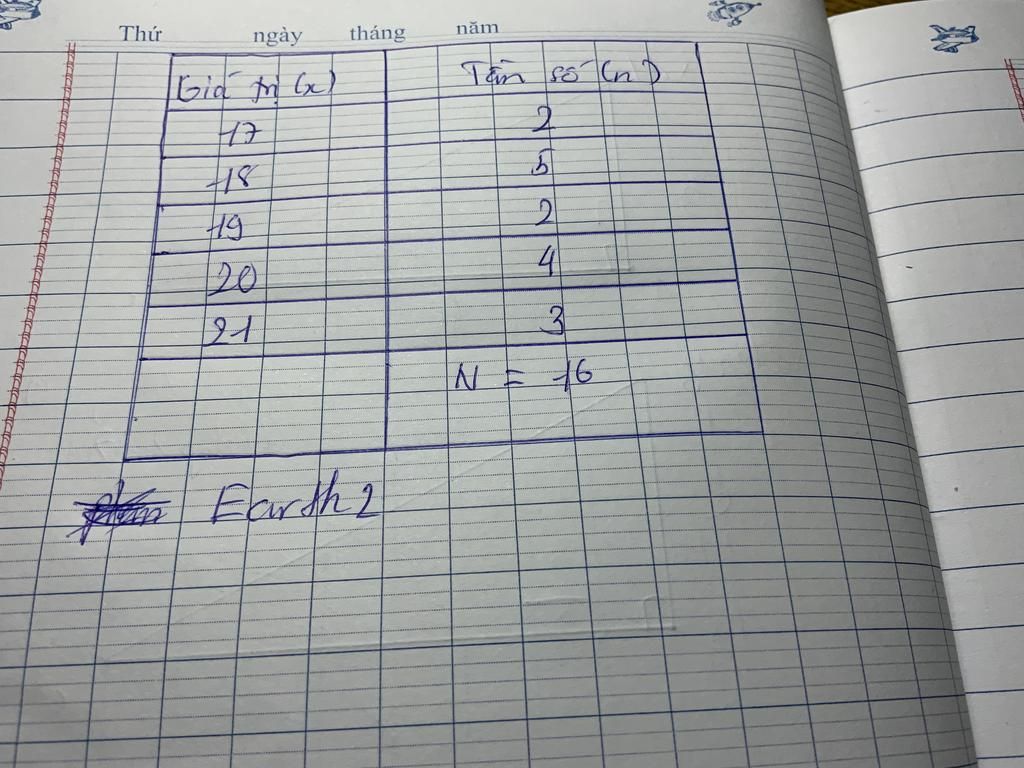 Thứ ngày tháng năm
Giá trị (x) Tần số (n)
17 2
18 5
19 2
20 4
21 3
N = 16
Earth 2